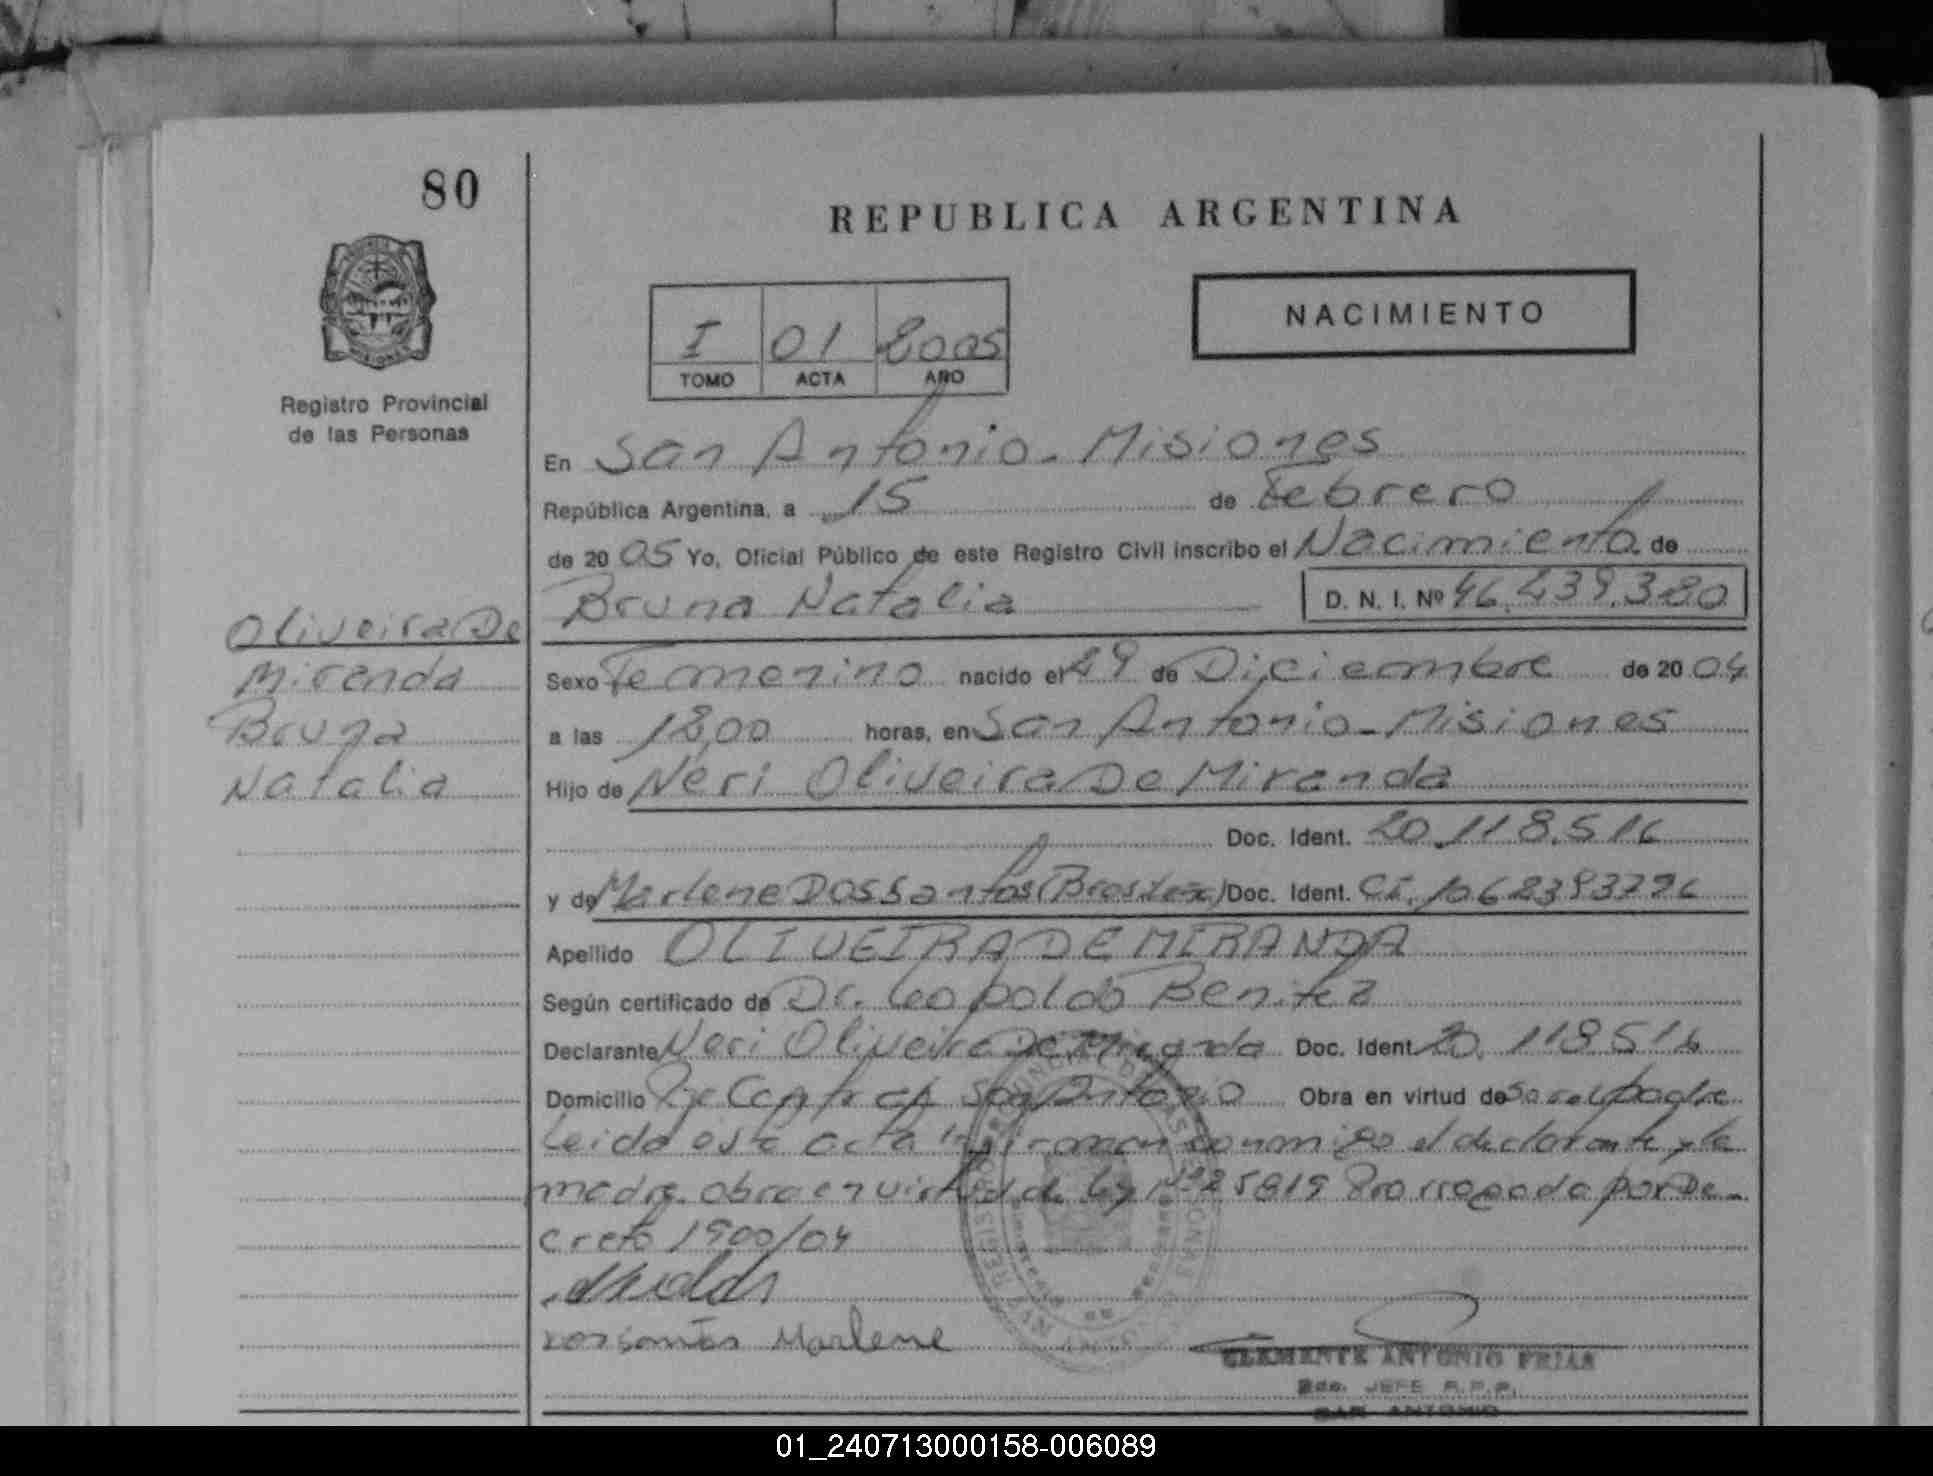 80
REPUBLICA ARGENTINA
NACIMIENTO
I 01 2005
TOMO ACTA AÑO
Registro Provincial
de las Personas
En San Antonio - Misiones
República Argentina, a 15 de Febrero
de 2005 Yo, Oficial Público de este Registro Civil inscribo el Nacimiento de
Bruna Natalia D. N. I. Nº 46.439.380
Oliveira De
Miranda
Bruna
Natalia
Sexo Femenino nacido el 29 de Diciembre de 2004
a las 18,00 horas, en San Antonio - Misiones
Hijo de Neri Oliveira De Miranda
Doc. Ident. 20.118.516
y de Marlene Dos Santos (Brasilera) Doc. Ident. CI. 1062393796
Apellido OLIVEIRA DE MIRANDA
Según certificado de Dr. Leopoldo Benitez
Declarante Neri Oliveira De Miranda Doc. Ident. 20.118516
Domicilio San Antonio Obra en virtud de ser el padre
Leida este acta la firman conmigo el declarante y la
madre. obra en virtud de Ley Nº 25819 Prorrogada por De-
creto 1900/04
dos santos Marlene
CLEMENTE ANTONIO FRIAS
2do. JEFE R.P.P.
SAN ANTONIO
01_240713000158-006089